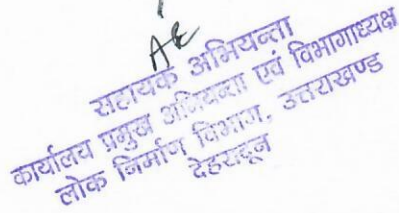 AE
सहायक अभियन्ता
कार्यालय प्रमुख अभियन्ता एवं विभागाध्यक्ष
लोक निर्माण विभाग, उत्तराखण्ड
देहरादून